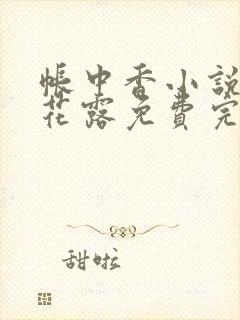 帐中香小說
花露免費完
甜啦